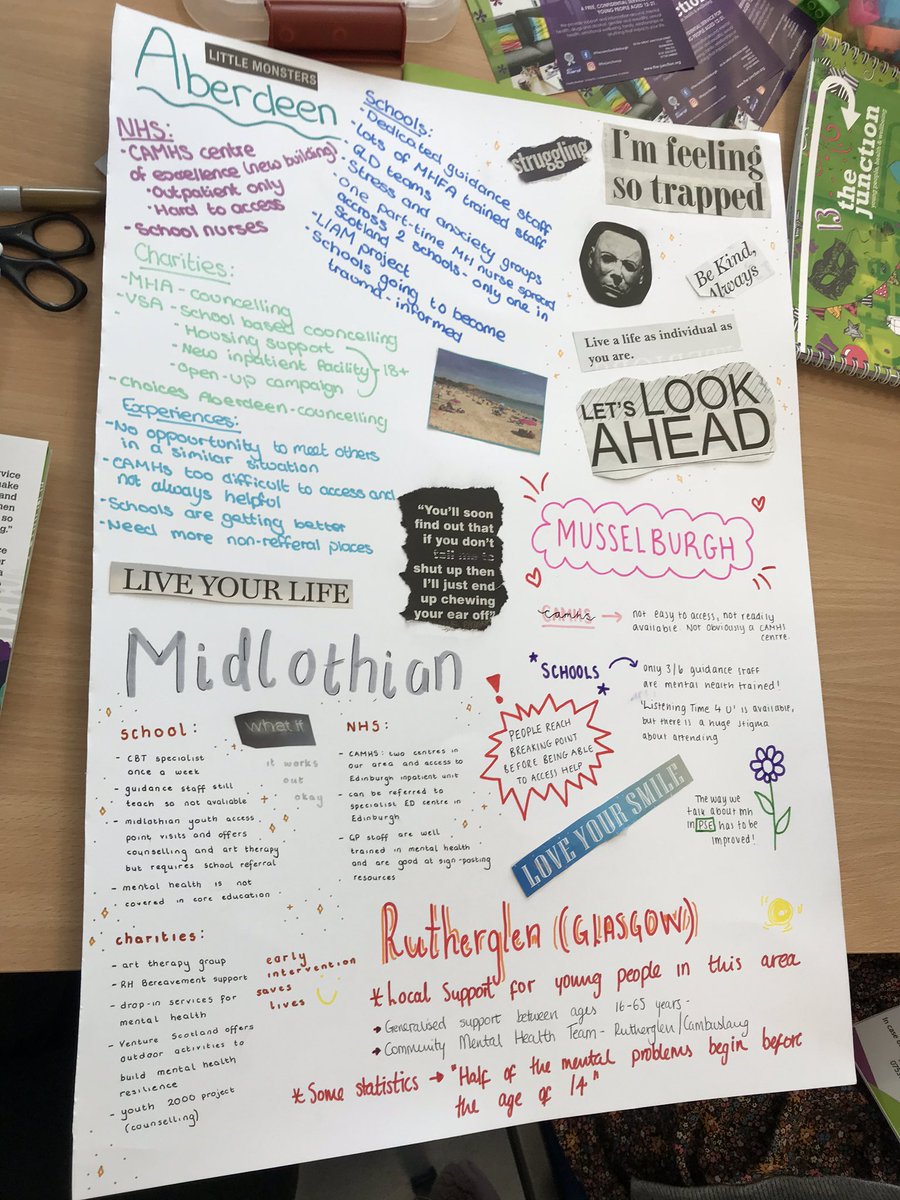 Aberdeen
LITTLE MONSTERS
NHS:
• CAMHS centre
of excellence (new building)
• Outpatient only
• Hard to access
• School nurses
Schools:
• Dedicated guidance staff
• Lots of MHFA trained staff
• GLD teams
• Stress and anxiety groups
• One part-time MH nurse spread
accross 2 schools - only one in
Scotland
• LIAM project
• Schools going to become
trauma-informed
Charities:
• MHA - councelling
• VSA - School based councelling
• Housing support
• New inpatient facility
• Open-up campaign
18+
• Choices Aberdeen - councelling
Experiences:
• No oppourtunity to meet others
in a similar situation
• CAMHS too difficult to access and
not always helpful
• Schools are getting better
• Need more non-refferal places
struggling
I'm feeling
so trapped
Be Kind,
Always
Live a life as individual as
you are.
LET'S LOOK
AHEAD
"You'll soon
find out that
if you don't
tell me to
shut up then
I'll just end
up chewing
your ear off"
LIVE YOUR LIFE
MUSSELBURGH
CAMHS
camhs
→ not easy to access, not readily
available. Not obviously a CAMHS
centre.
* SCHOOLS *
only 3/6 guidance staff
are mental health trained!
'Listening Time 4 U' is available,
but there is a huge stigma
about attending
!
PEOPLE REACH
BREAKING POINT
BEFORE BEING ABLE
TO ACCESS HELP
LOVE YOUR SMILE
The way we
talk about mh
in PSE has to be
improved!
Midlothian
school:
- CBT specialist
once a week
- guidance staff still
teach so not avaliable
- midlothian youth access
point visits and offers
counselling and art therapy
but requires school referral
- mental health is not
covered in core education
what if
it works
out
okay
NHS:
- CAMHS: two centres in
our area and access to
Edinburgh inpatient unit
- can be referred to
specialist ED centre in
Edinburgh
- GP staff are well
trained in mental health
and are good at sign-posting
resources
charities:
- art therapy group
- RH Bereavement support
- drop-in services for
mental health
- Venture Scotland offers
outdoor activities to
build mental health
resilience
- youth 2000 project
(counselling)
early
intervention
saves
lives
Rutherglen (GLASGOW)
* Local Support for young people in this area
→ Generalised support between ages 16-65 years -
→ Community Mental Health Team - Rutherglen/Cambuslang
* Some statistics → "Half of the mental problems begin before
the age of 14"
the
junction